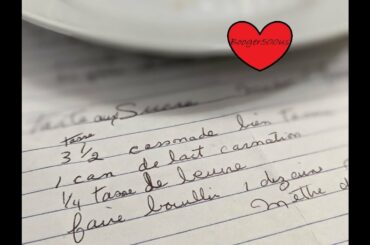 Boogersoous
Tarte aux Sucre
tasse
3 1/2 cassonade bien
1 can de lait carnation
1/4 tasse de beurre
faire bouillir 1 dizaine
Mettre